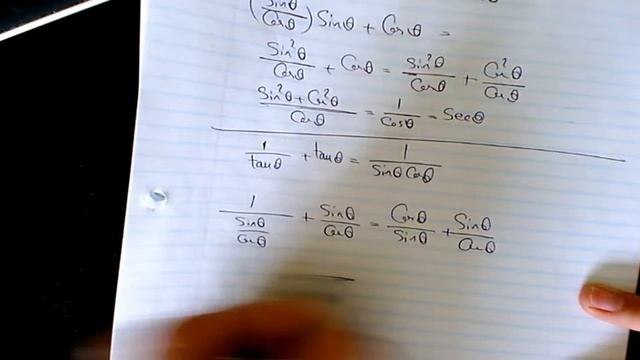 (Sinθ/Cosθ) Sinθ + Cosθ =
Sin²θ/Cosθ + Cosθ = Sin²θ/Cosθ + Cos²θ/Cosθ
(Sin²θ + Cos²θ)/Cosθ = 1/Cosθ = Secθ
1/tanθ + tanθ = 1/(Sinθ Cosθ)
1/(Sinθ/Cosθ) + Sinθ/Cosθ = Cosθ/Sinθ + Sinθ/Cosθ